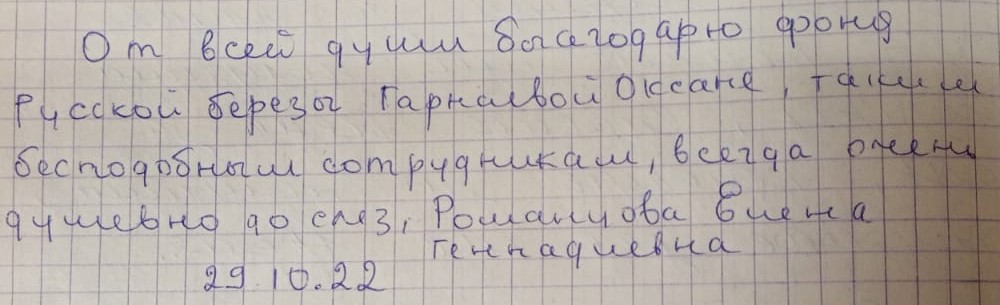 От всей души благодарю фонд
Русской березы Гарнаевой Оксане, таким
бесподобным сотрудникам, всегда очень
душевно до слез, Романцова Елена
Геннадиевна
29.10.22